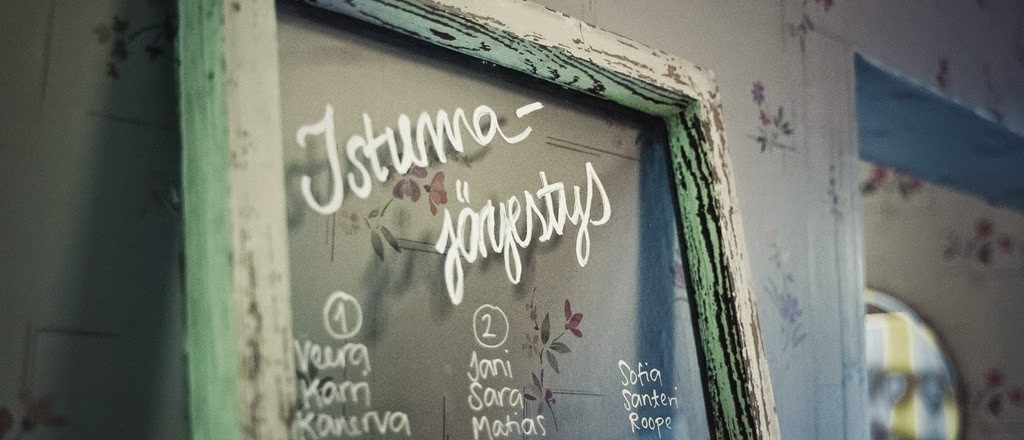 Istuma-
järjestys
1
Veera
Kam
Kanerva
2
Jani
Sara
Matias
Sofia
Santeri
Roope